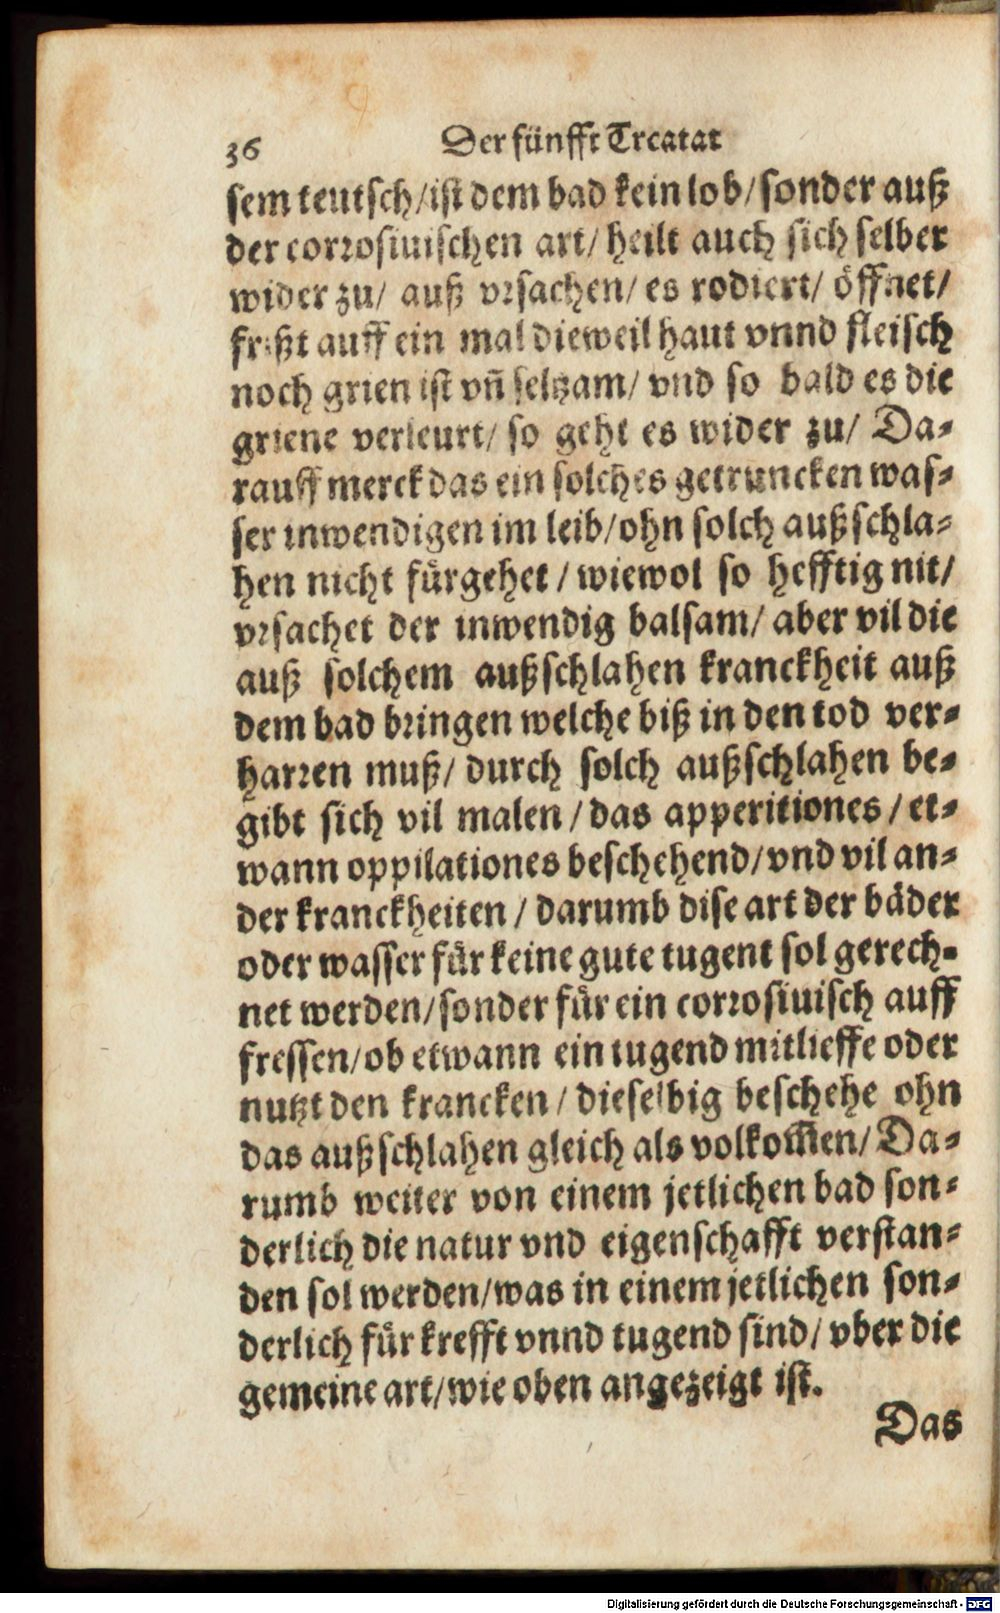 36 Der fünfft Trcatat
sem teutsch/ist dem bad kein lob/sonder auß
der corrosiuischen art/ heilt auch sich selber
wider zu/ auß vrsachen/ es rodiert/ öffnet/
frißt auff ein mal dieweil haut vnnd fleisch
noch grien ist vñ seltzam/ vnd so bald es die
griene verleurt/ so geht es wider zu/ Da-
rauff merck das ein solches getruncken was-
ser inwendigen im leib/ohn solch außschla-
hen nicht fürgehet / wiewol so hefftig nit/
vrsachet der inwendig balsam/ aber vil die
auß solchem außschlahen kranckheit auß
dem bad bringen welche biß in den tod ver-
harren muß/ durch solch außschlahen be-
gibt sich vil malen / das apperitiones / et-
wann oppilationes beschehend/vnd vil an-
der kranckheiten / darumb dise art der bäder
oder wasser für keine gute tugent sol gerech-
net werden/sonder für ein corrosiuisch auff
fressen/ob etwann ein tugend mitlieffe oder
nutzt den krancken / dieselbig beschehe ohn
das außschlahen gleich als volkom̃en/ Da-
rumb weiter von einem jetlichen bad son-
derlich die natur vnd eigenschafft verstan-
den sol werden/was in einem jetlichen son-
derlich für krefft vnnd tugend sind/ vber die
gemeine art/wie oben angezeigt ist.
Das
Digitalisierung gefördert durch die Deutsche Forschungsgemeinschaft - DFG